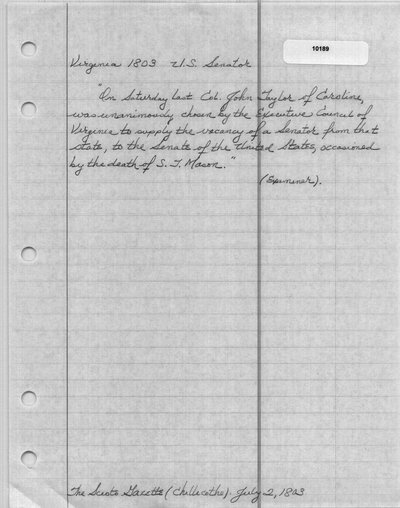 10189
Virginia 1803 U.S. Senator
"On Saturday last Col. John Taylor of Caroline,
was unanimously chosen by the Executive Council of
Virginia to supply the vacancy of a Senator from that
state, to the Senate of the United States, occasioned
by the death of S. T. Mason."
(Examiner).
The Scioto Gazette (Chillicothe). July 2, 1803